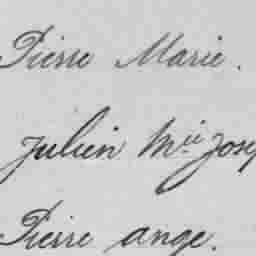 Pierre Marie.
Julien Mie Jose
Pierre ange.